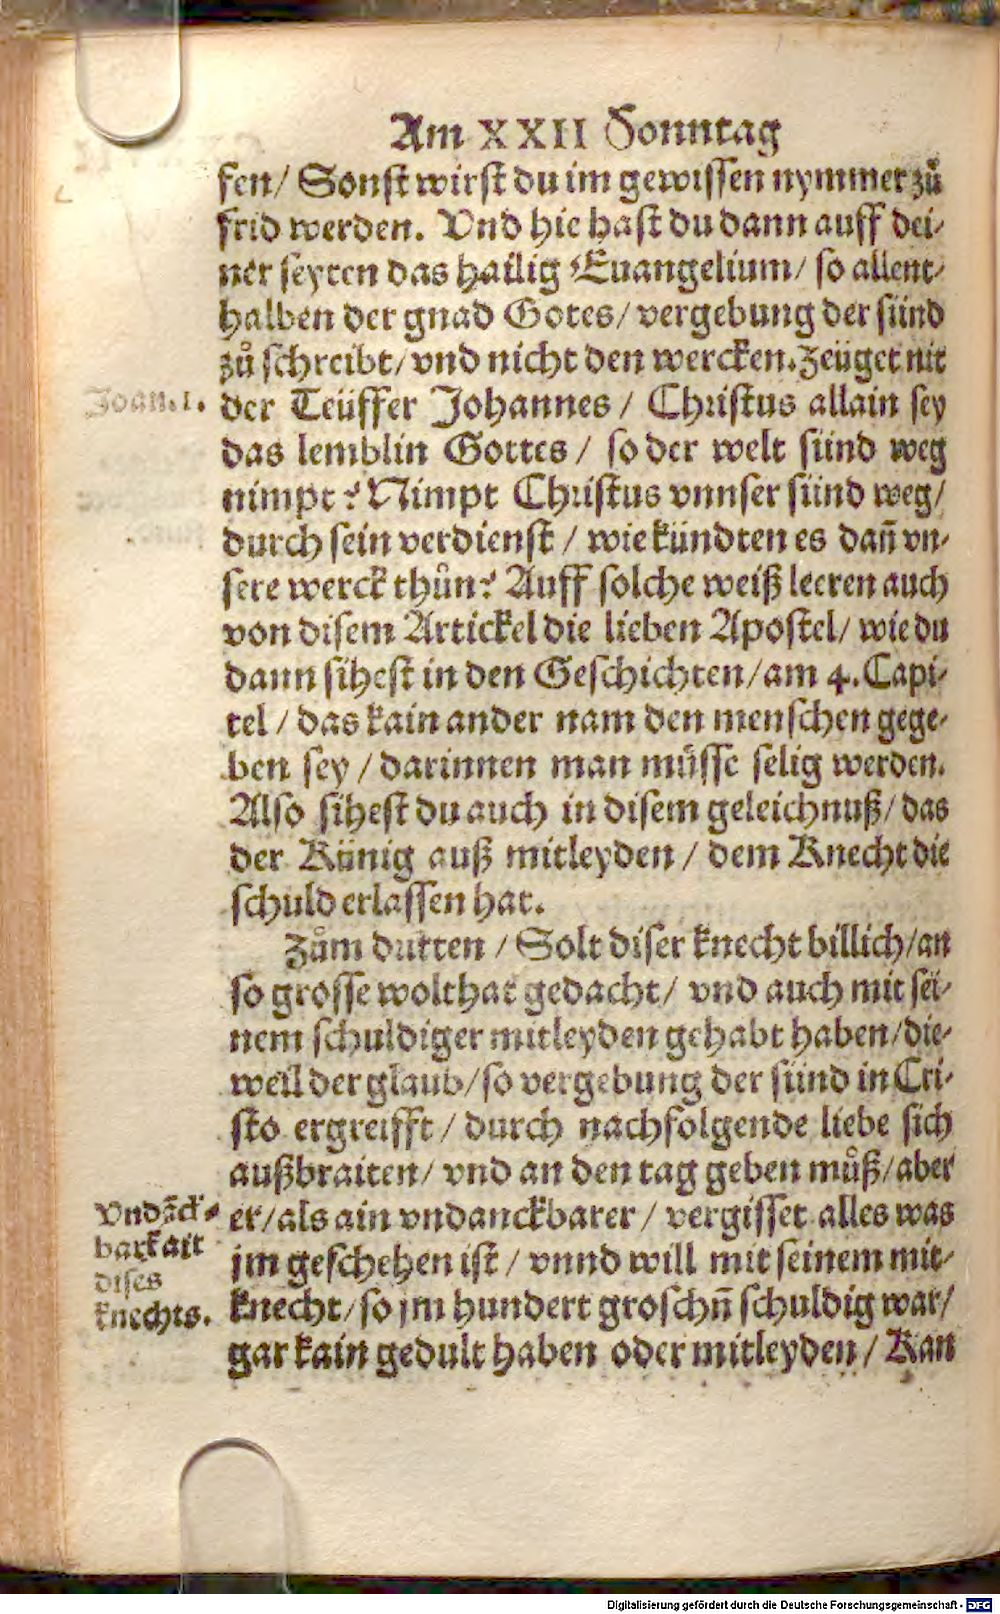 Am XXII Sonntag
fen/ Sonst wirst du im gewissen nymmer zů
frid werden. Vnd hie hast du dann auff dei-
ner seyten das hailig Euangelium/ so allent-
halben der gnad Gotes/ vergebung der sünd
zů schreibt/ vnd nicht den wercken. Zeüget nit
Joan. 1.
der Teüffer Johannes/ Christus allain sey
das lemblin Gottes/ so der welt sünd weg
nimpt? Nimpt Christus vnnser sünd weg/
durch sein verdienst/ wie kündten es dañ vn-
sere werck thůn? Auff solche weiß leeren auch
von disem Artickel die lieben Apostel/ wie du
dann sihest in den Geschichten/ am 4. Capi-
tel/ das kain ander nam den menschen gege-
ben sey/ darinnen man müsse selig werden.
Also sihest du auch in disem geleichnuß/ das
der Künig auß mitleyden/ dem Knecht die
schuld erlassen hat.
Zům dritten/ Solt diser knecht billich/ an
so grosse wolthat gedacht/ vnd auch mit sei-
nem schuldiger mitleyden gehabt haben/ die-
weil der glaub/ so vergebung der sünd in Cri-
sto ergreifft/ durch nachfolgende liebe sich
außbraiten/ vnd an den tag geben můß/ aber
Vndãck-
barkait
dises
knechts.
er/ als ain vndanckbarer/ vergisset alles was
jm geschehen ist/ vnnd will mit seinem mit-
knecht/ so jm hundert groschñ schuldig war/
gar kain gedult haben oder mitleyden/ Kan
Digitalisierung gefördert durch die Deutsche Forschungsgemeinschaft - DFG